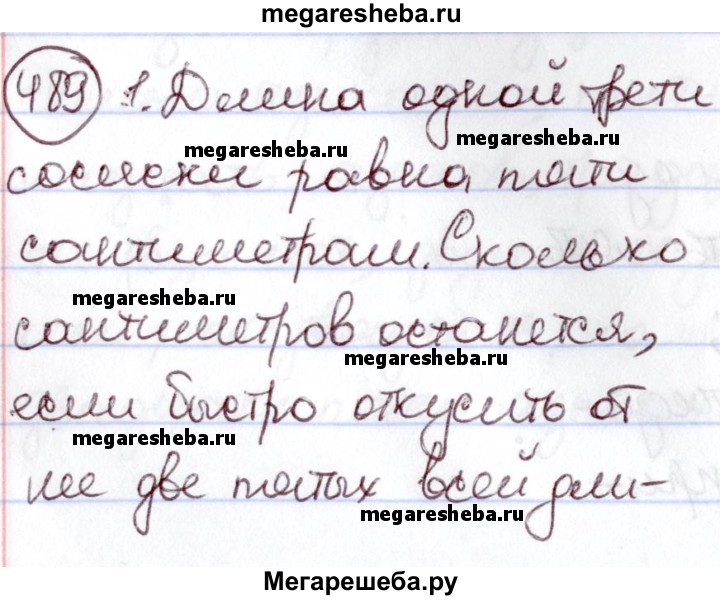 megaresheba.ru
489 1. Длина одной трети
megaresheba.ru
megaresheba.ru
сосиски равна пяти
сантиметрам. Сколько
megaresheba.ru
сантиметров останется,
megaresheba.ru
если быстро откусить от
megaresheba.ru
нее две пятых всей дли-
megaresheba.ru
Мегарешеба.ру